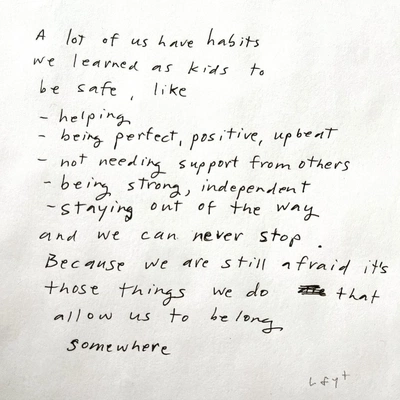 A lot of us have habits
we learned as kids to
be safe, like
- helping
- being perfect, positive, upbeat
- not needing support from others
- being strong, independent
- staying out of the way
and we can never stop.
Because we are still afraid it's
those things we do that
allow us to belong
somewhere